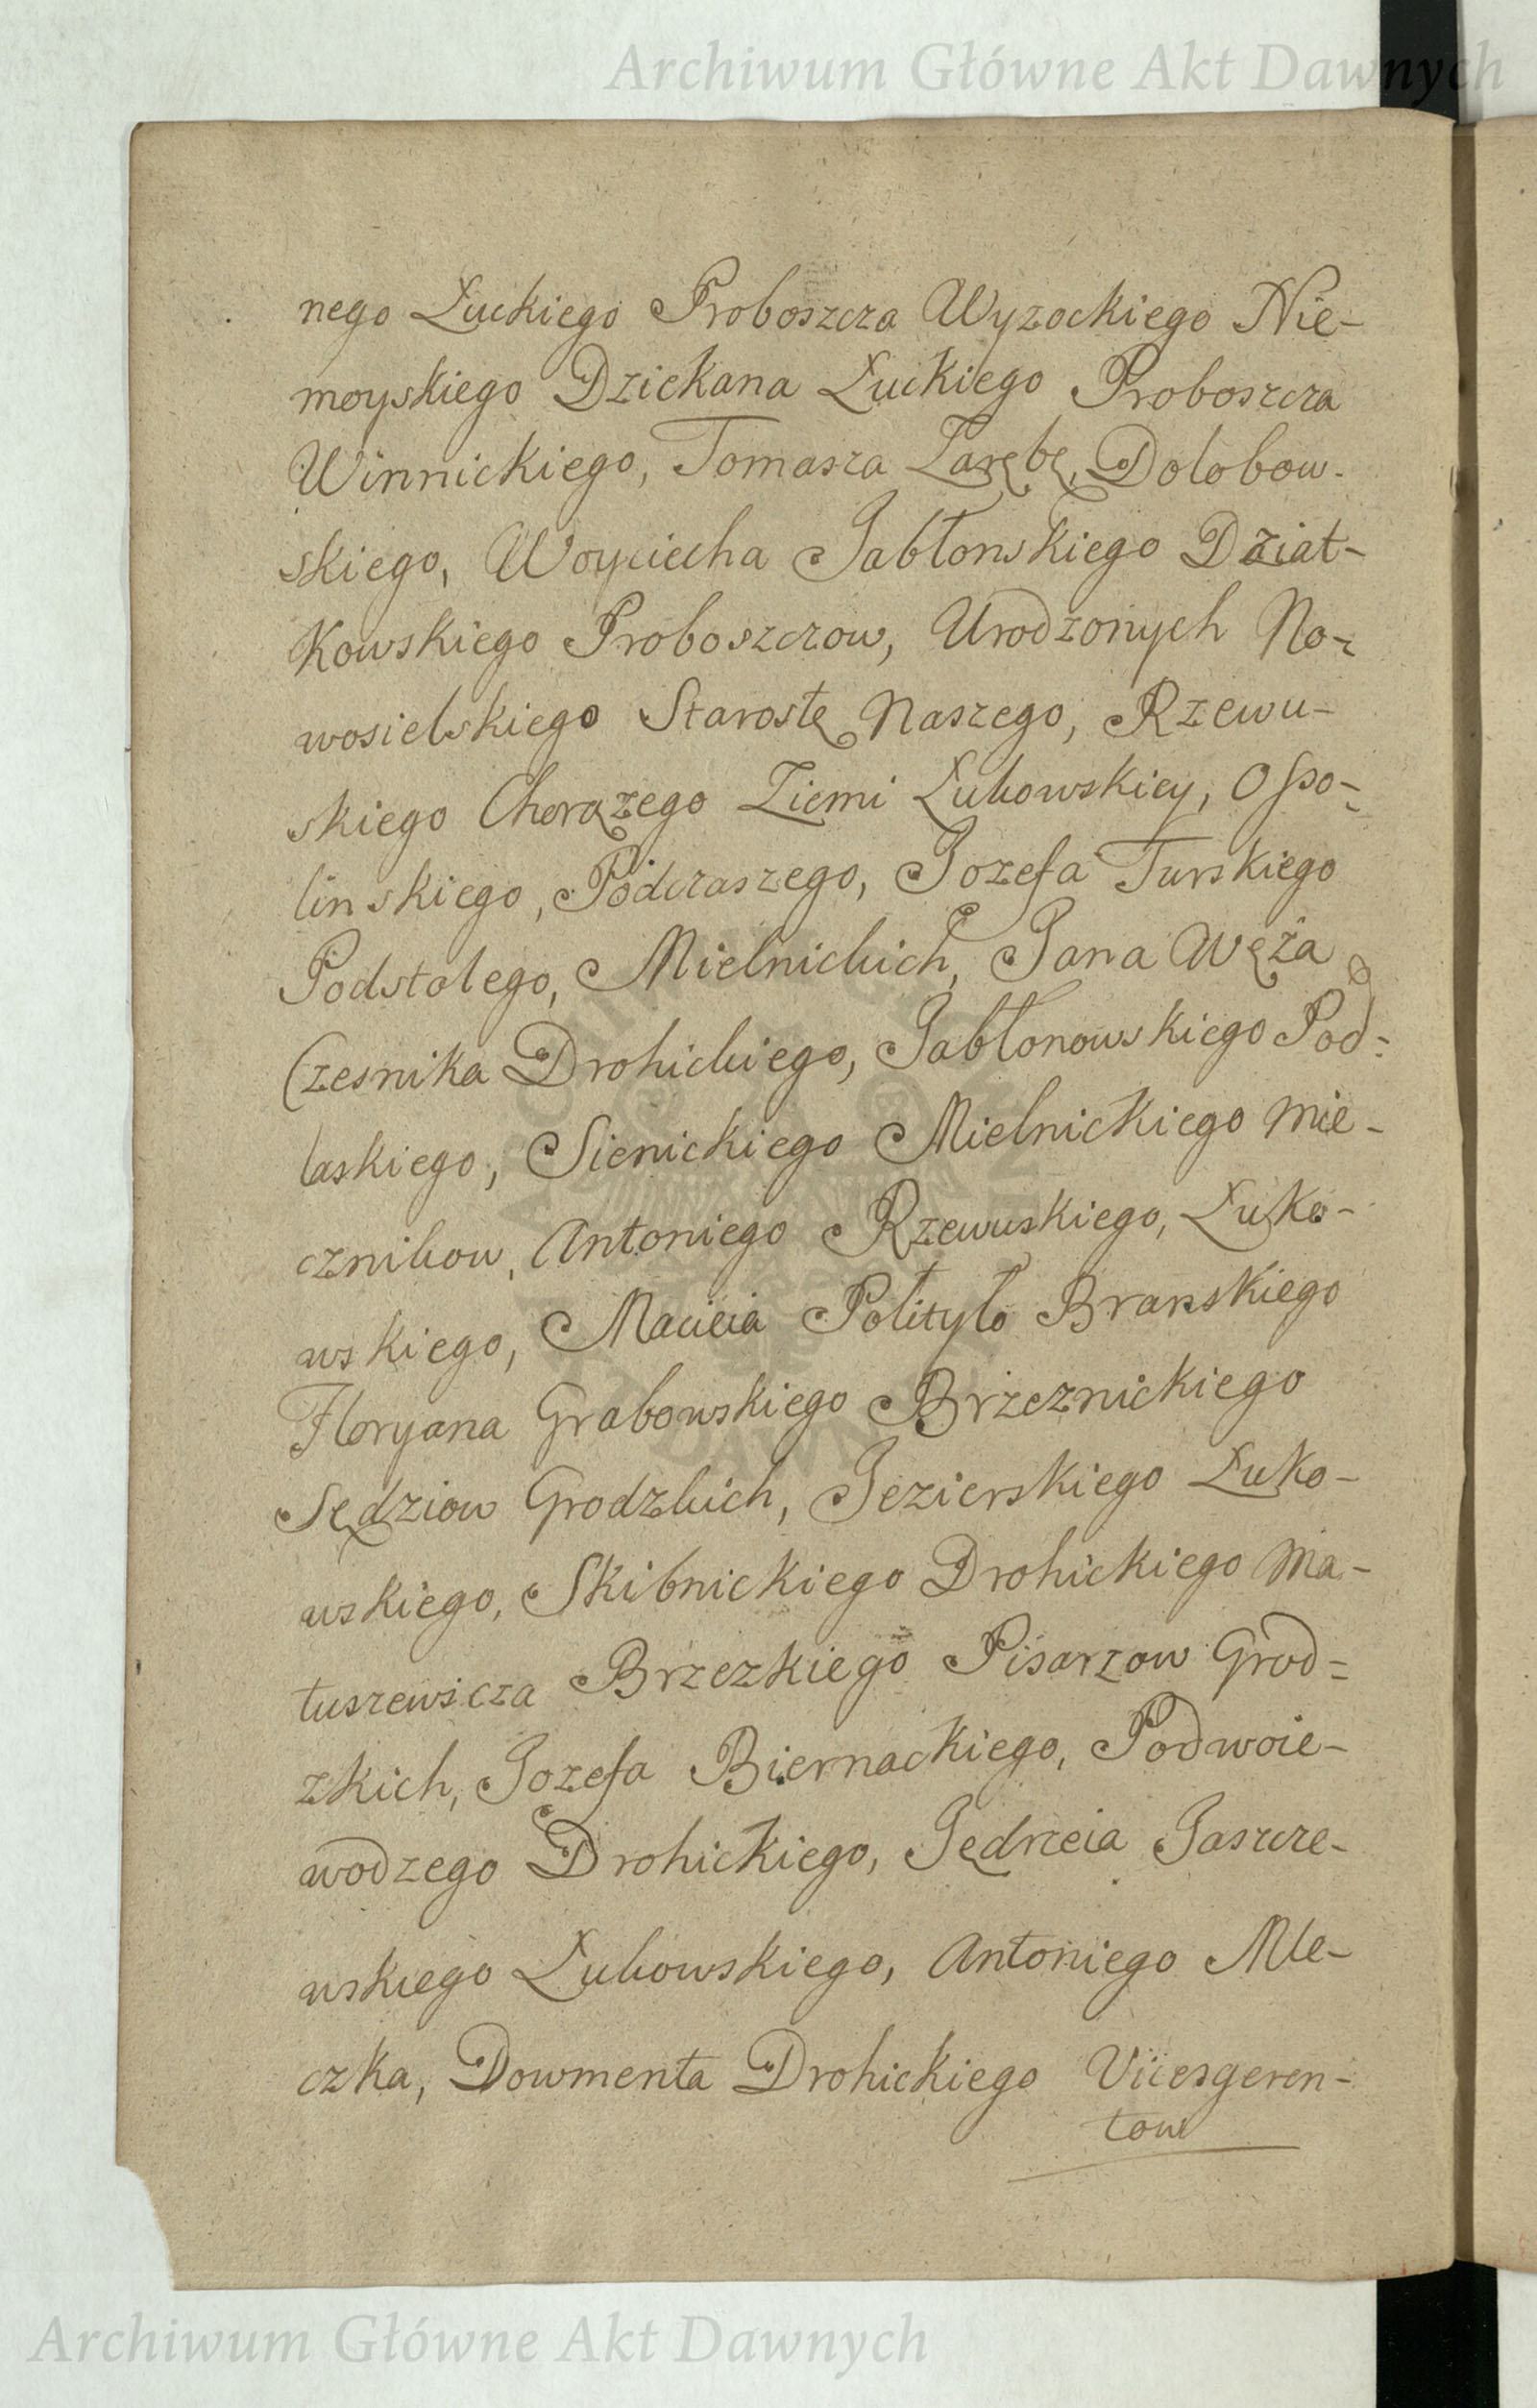 Archiwum Główne Akt Dawnych
nego Łuckiego Proboszcza Wyzockiego Nie-
moyskiego Dziekana Łuckiego Proboszcza
Winnickiego, Tomasza Zarębę, Dolobow-
skiego, Woyciecha Jabłonskiego Dziat-
kowskiego Proboszczow, Urodzonych No-
wosielskiego Starostę Naszego, Rzewu-
skiego Chorążego Ziemi Łukowskiey, Osso-
linskiego, Podczaszego, Jozefa Turskiego
Podstolego, Mielnickich, Jana Węża
Czesnika Drohickiego, Jabłonowskiego Pod-
laskiego, Sienickiego Mielnickiego Mie-
cznikow, Antoniego Rzewuskiego, Łuko-
wskiego, Macieia Polityło Branskiego
Floryana Grabowskiego Brzeznickiego
Sędziow Grodzkich, Jezierskiego Łuko-
wskiego, Skibnickiego Drohickiego Ma-
tuszewicza Brzezkiego Pisarzow Grod-
zkich, Jozefa Biernackiego, Podwoie-
wodzego Drohickiego, Jędrzeia Jaszcze-
wskiego Łukowskiego, Antoniego Mle-
czka, Dowmenta Drohickiego Vicesgeren-
tow
Archiwum Główne Akt Dawnych